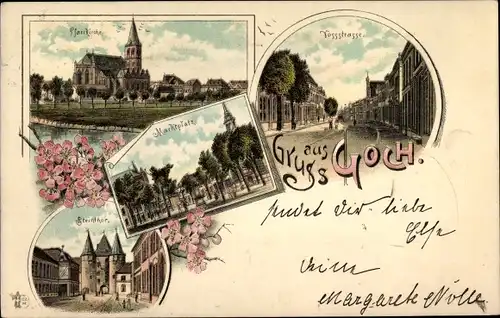 Pfarrkirche
Vossstrasse.
Marktplatz.
Gruss aus
GOCH.
Steinthor.
sendet Dir, liebe
Else
Deine
Margarete Nolle.